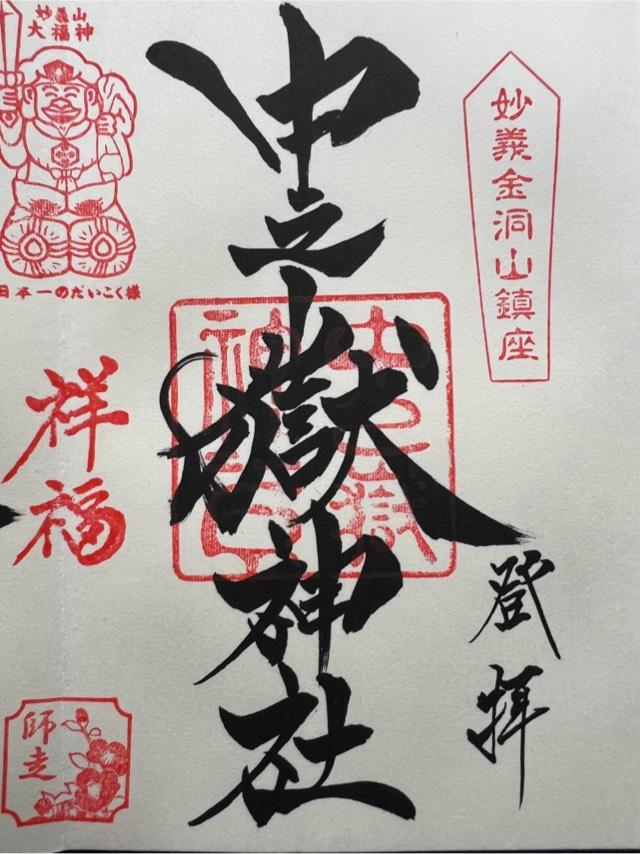 妙義金洞山鎮座
登拝
中之嶽神社
中之嶽
神
妙義山
大福神
日本一のだいこく様
祥福
師走